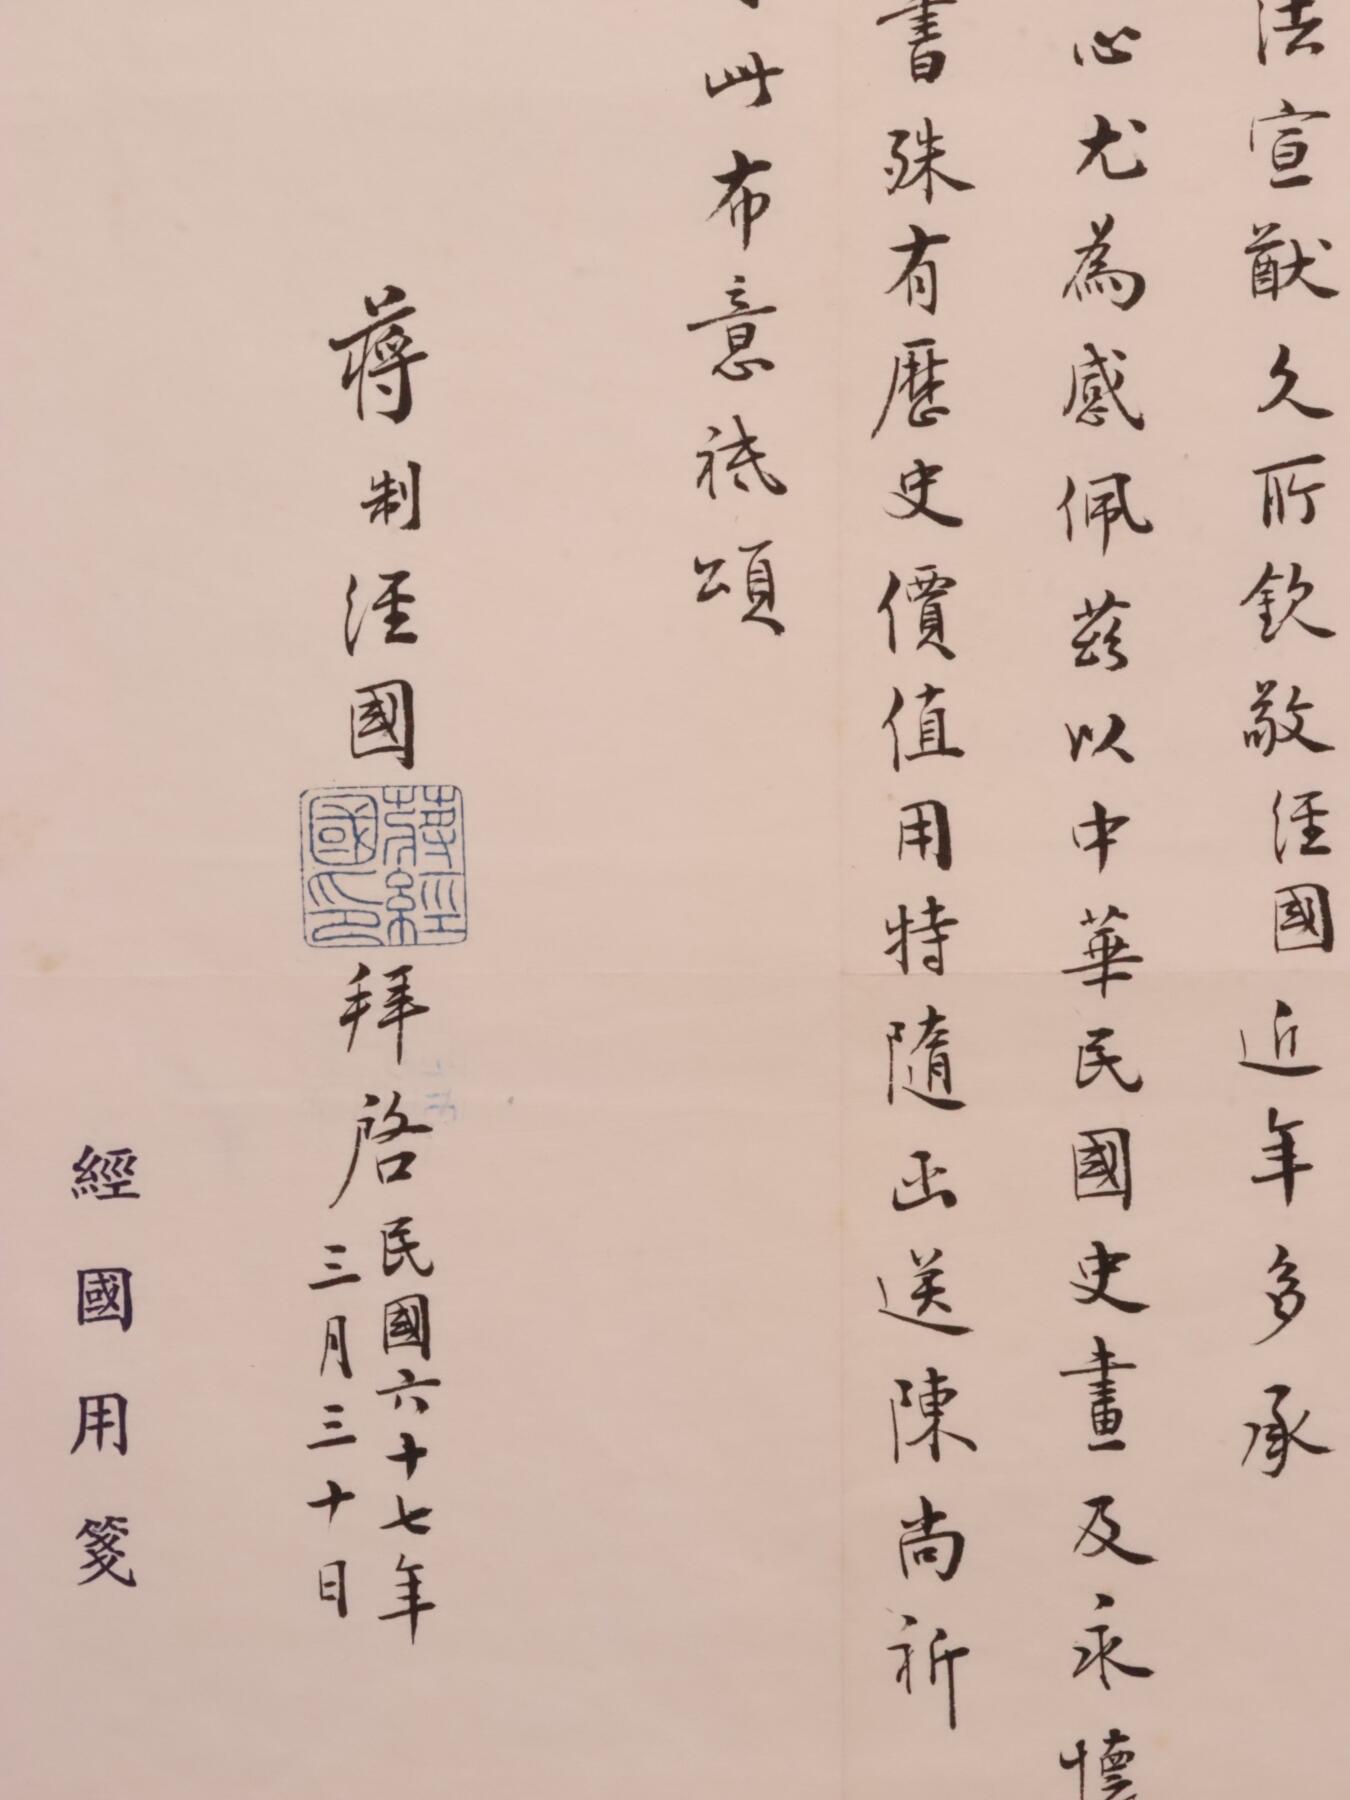 法宣猷久所欽敬經國近年多承
心尤為感佩茲以中華民國史畫及永懷
書殊有歷史價值用特隨函送陳尚祈
此布意祗頌
蔣制經國
蔣經國印
拜啓
民國六十七年
三月三十日
經國用箋